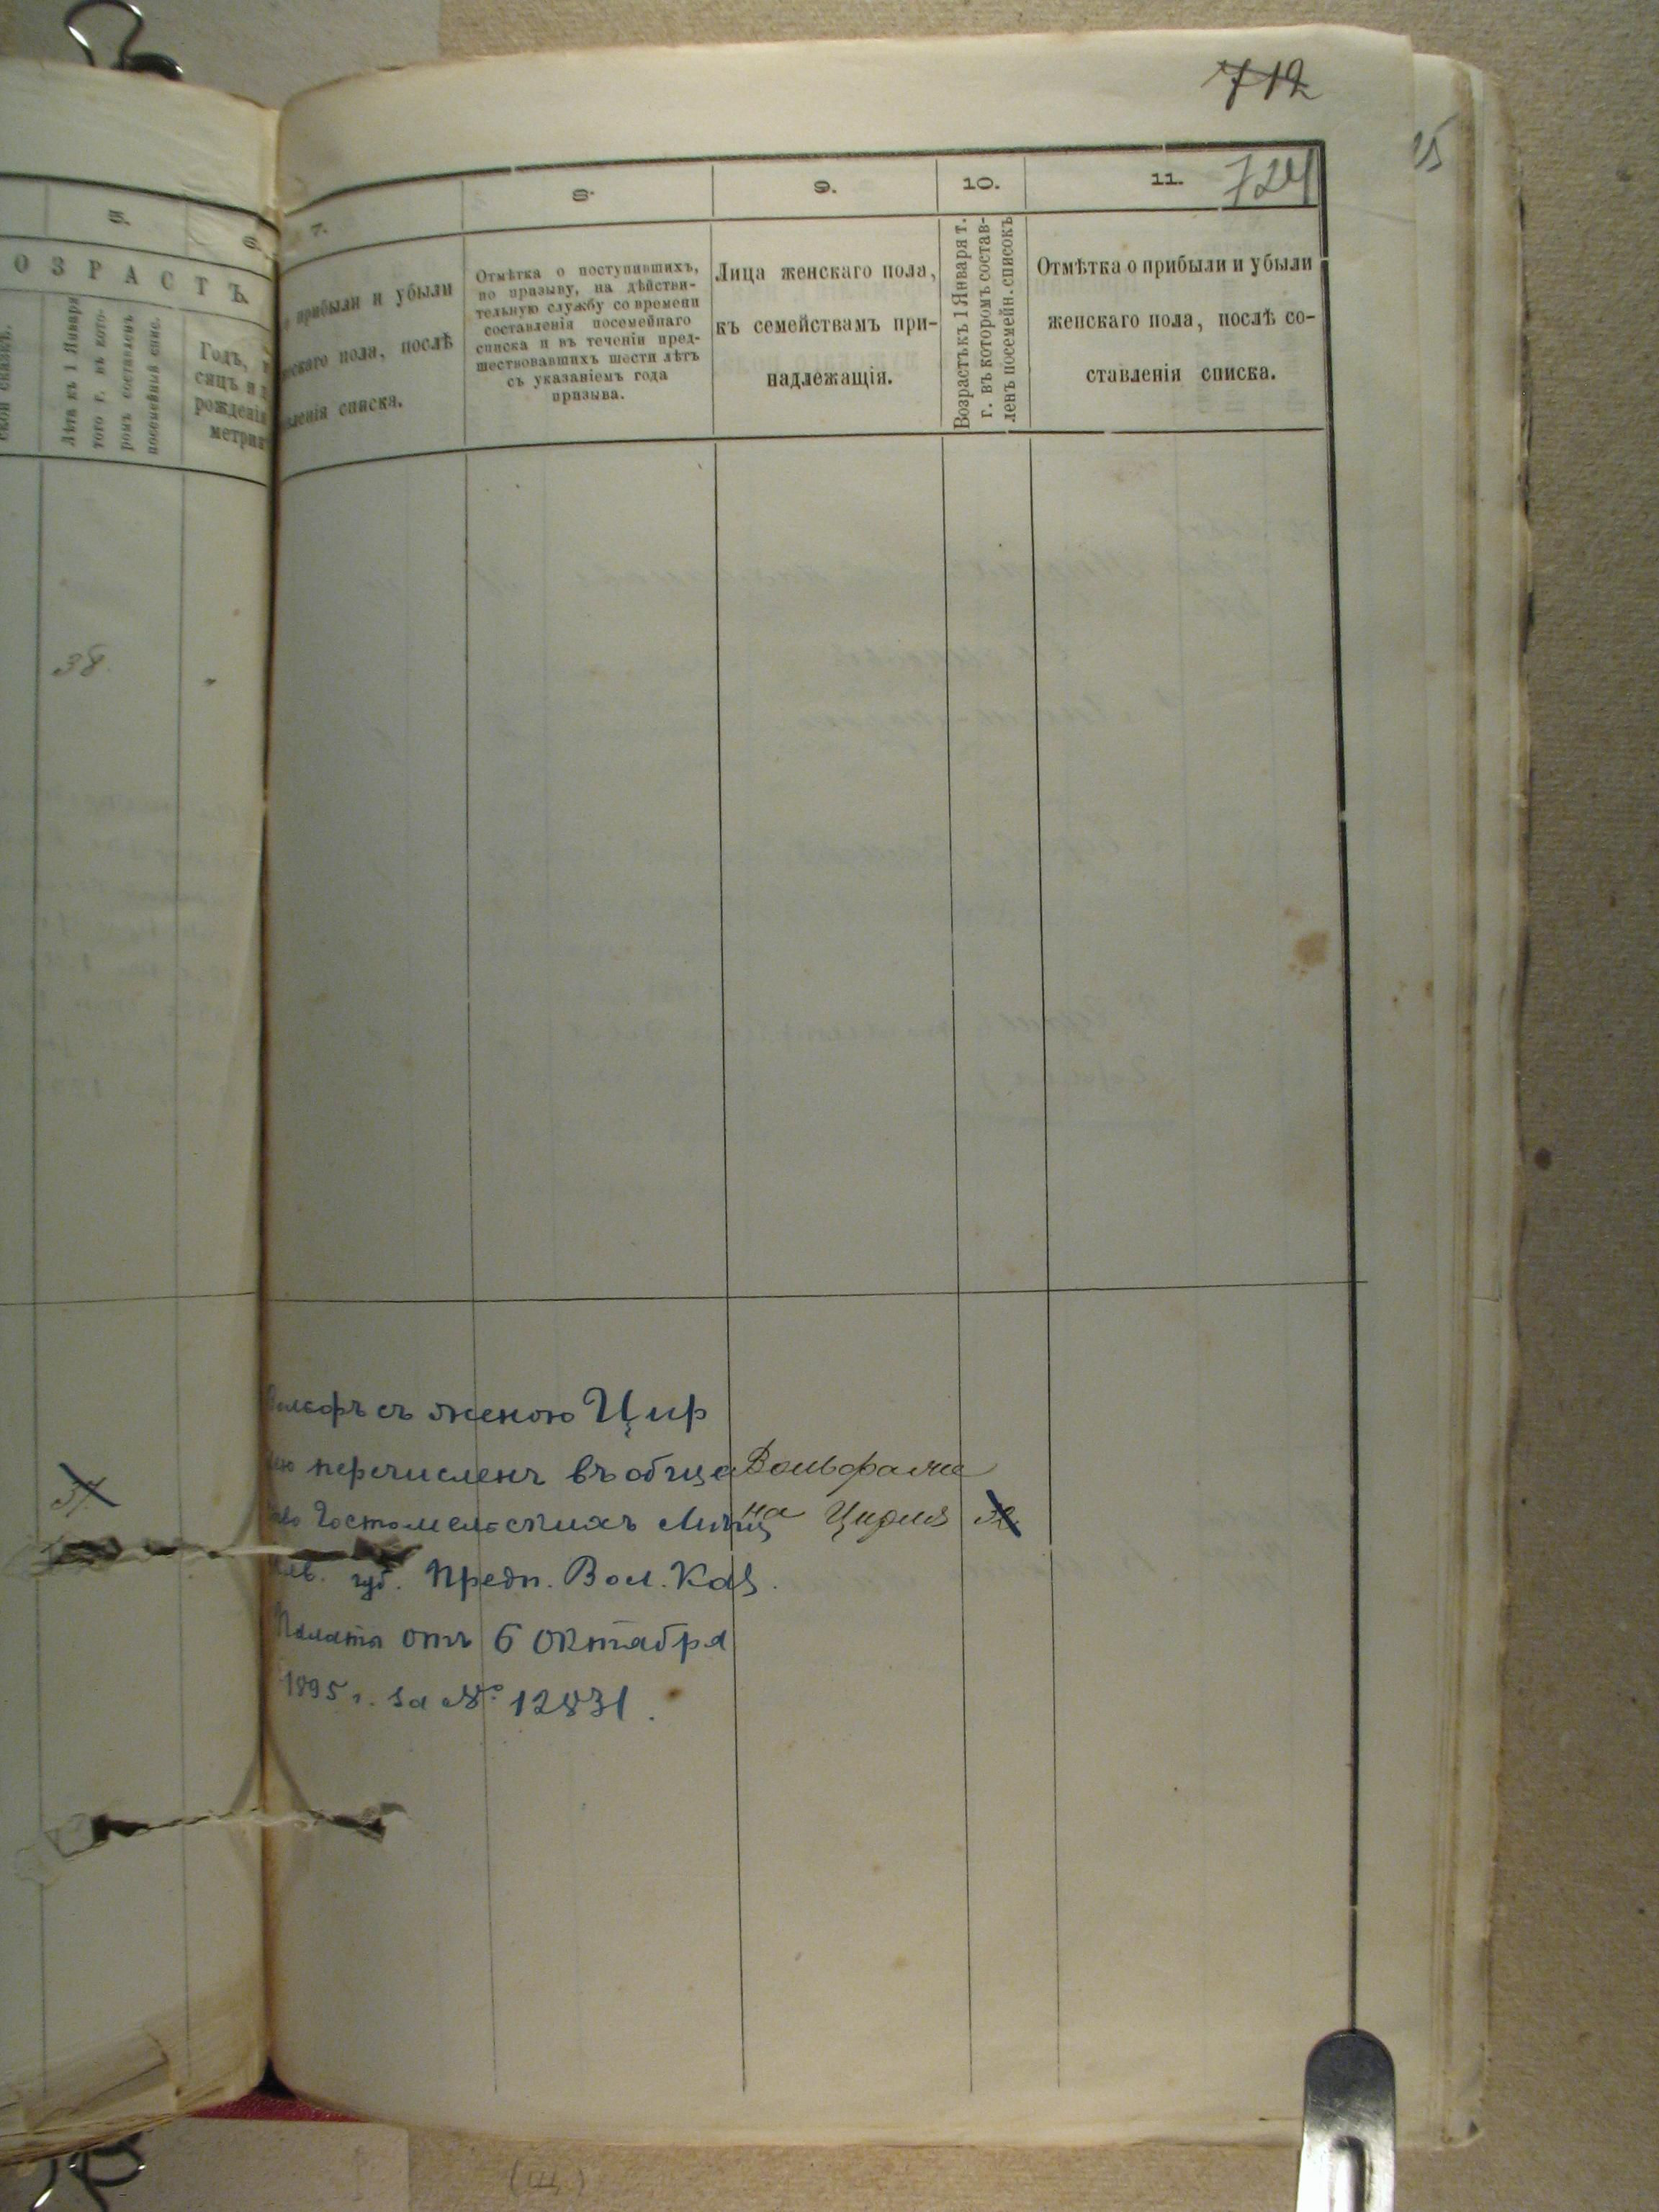 712
25
724
5.
6.
ОЗРАСТЪ.
Лѣтъ къ 1 Января
того г. въ кото-
ромъ составленъ
посемейный спис.
Годъ,
сяцъ и
рожденія
метрик
38.
37
7.
прибыли и убыли
пола, послѣ
списка.
8.
Отмѣтка о поступившихъ,
по призыву, на дѣйстви-
тельную службу со времени
составленія посемейнаго
списка и въ теченіи пред-
шествовавшихъ шести лѣтъ
съ указаніемъ года
призыва.
9.
Лица женскаго пола,
къ семействамъ при-
надлежащія.
10.
Возрастъ къ 1 Января т.
г. въ которомъ состав-
ленъ посемейн. списокъ
11.
Отмѣтка о прибыли и убыли
женскаго пола, послѣ со-
ставленія списка.
съ женою Цир
перечисленъ въ обще
Гостомельскихъ
губ. Предп. Вол. Каз.
Палаты отъ 6 Октября
1895 г. за № 12831.
Вольфа жена
Цирля